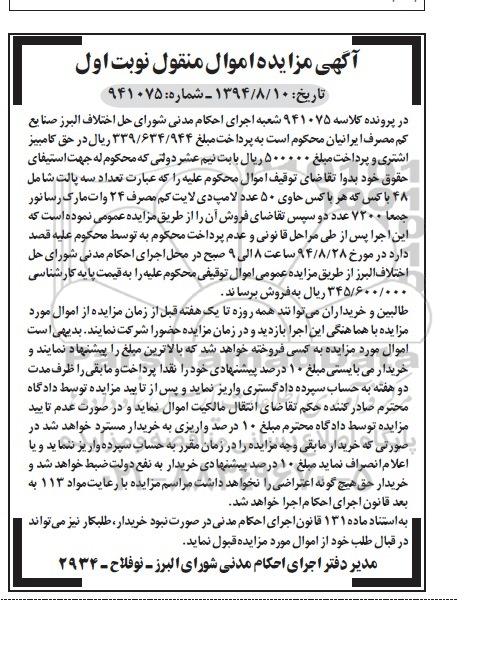 آگهی مزایده اموال منقول نوبت اول
تاریخ: ۱۳۹۴/۸/۱۰ ـ شماره: ۹۴۱۰۷۵
در پرونده کلاسه ۹۴۱۰۷۵ شعبه اجرای احکام مدنی شورای حل اختلاف البرز صنایع
کم مصرف ایرانیان محکوم است به پرداخت مبلغ ۳۳۹/۶۳۴/۹۴۴ ریال در حق کامبیز
اشتری و پرداخت مبلغ ۵۰۰۰۰۰ ریال بابت نیم عشر دولتی که محکوم له جهت استیفای
حقوق خود بدوا تقاضای توقیف اموال محکوم علیه را که عبارت تعداد سه پالت شامل
۴۸ باکس که هر باکس حاوی ۵۰ عدد لامپ دی لایت کم مصرف ۲۴ وات مارک رسانور
جمعا ۷۲۰۰ عدد دو سپس تقاضای فروش آن را از طریق مزایده عمومی نموده است که
این اجرا پس از طی مراحل قانونی و عدم پرداخت محکوم به توسط محکوم علیه قصد
دارد در مورخ ۹۴/۸/۲۸ ساعت ۸ الی ۹ صبح در محل اجرای احکام مدنی شورای حل
اختلاف البرز از طریق مزایده عمومی اموال توقیفی محکوم علیه را به قیمت پایه کارشناسی
۳۴۵/۶۰۰/۰۰۰ ریال به فروش برساند.
طالبین و خریداران می توانند همه روزه تا یک هفته قبل از زمان مزایده از اموال مورد
مزایده با هماهنگی این اجرا بازدید و در زمان مزایده حضورا شرکت نمایند. بدیهی است
اموال مورد مزایده به کسی فروخته خواهد شد که بالاترین مبلغ را پیشنهاد نمایند و
خریدار می بایستی مبلغ ۱۰ درصد پیشنهادی خود را نقدا پرداخت و مابقی را ظرف مدت
دو هفته به حساب سپرده دادگستری واریز نماید و پس از تایید مزایده توسط دادگاه
محترم صادر کننده حکم تقاضای انتقال مالکیت اموال نماید و در صورت عدم تایید
مزایده توسط دادگاه محترم مبلغ ۱۰ درصد واریزی به خریدار مسترد خواهد شد در
صورتی که خریدار مابقی وجه مزایده را در زمان مقرر به حساب سپرده واریز ننماید و یا
اعلام انصراف نماید مبلغ ۱۰ درصد پیشنهادی خریدار به نفع دولت ضبط خواهد شد و
خریدار حق هیچ گونه اعتراضی را نخواهد داشت مراسم مزایده با رعایت مواد ۱۱۳ به
بعد قانون اجرای احکام اجرا خواهد شد.
به استناد ماده ۱۳۱ قانون اجرای احکام مدنی در صورت نبود خریدار، طلبکار نیز می تواند
در قبال طلب خود از اموال مورد مزایده قبول نماید.
مدیر دفتر اجرای احکام مدنی شورای البرز ـ نوفلاح ـ ۲۹۳۴